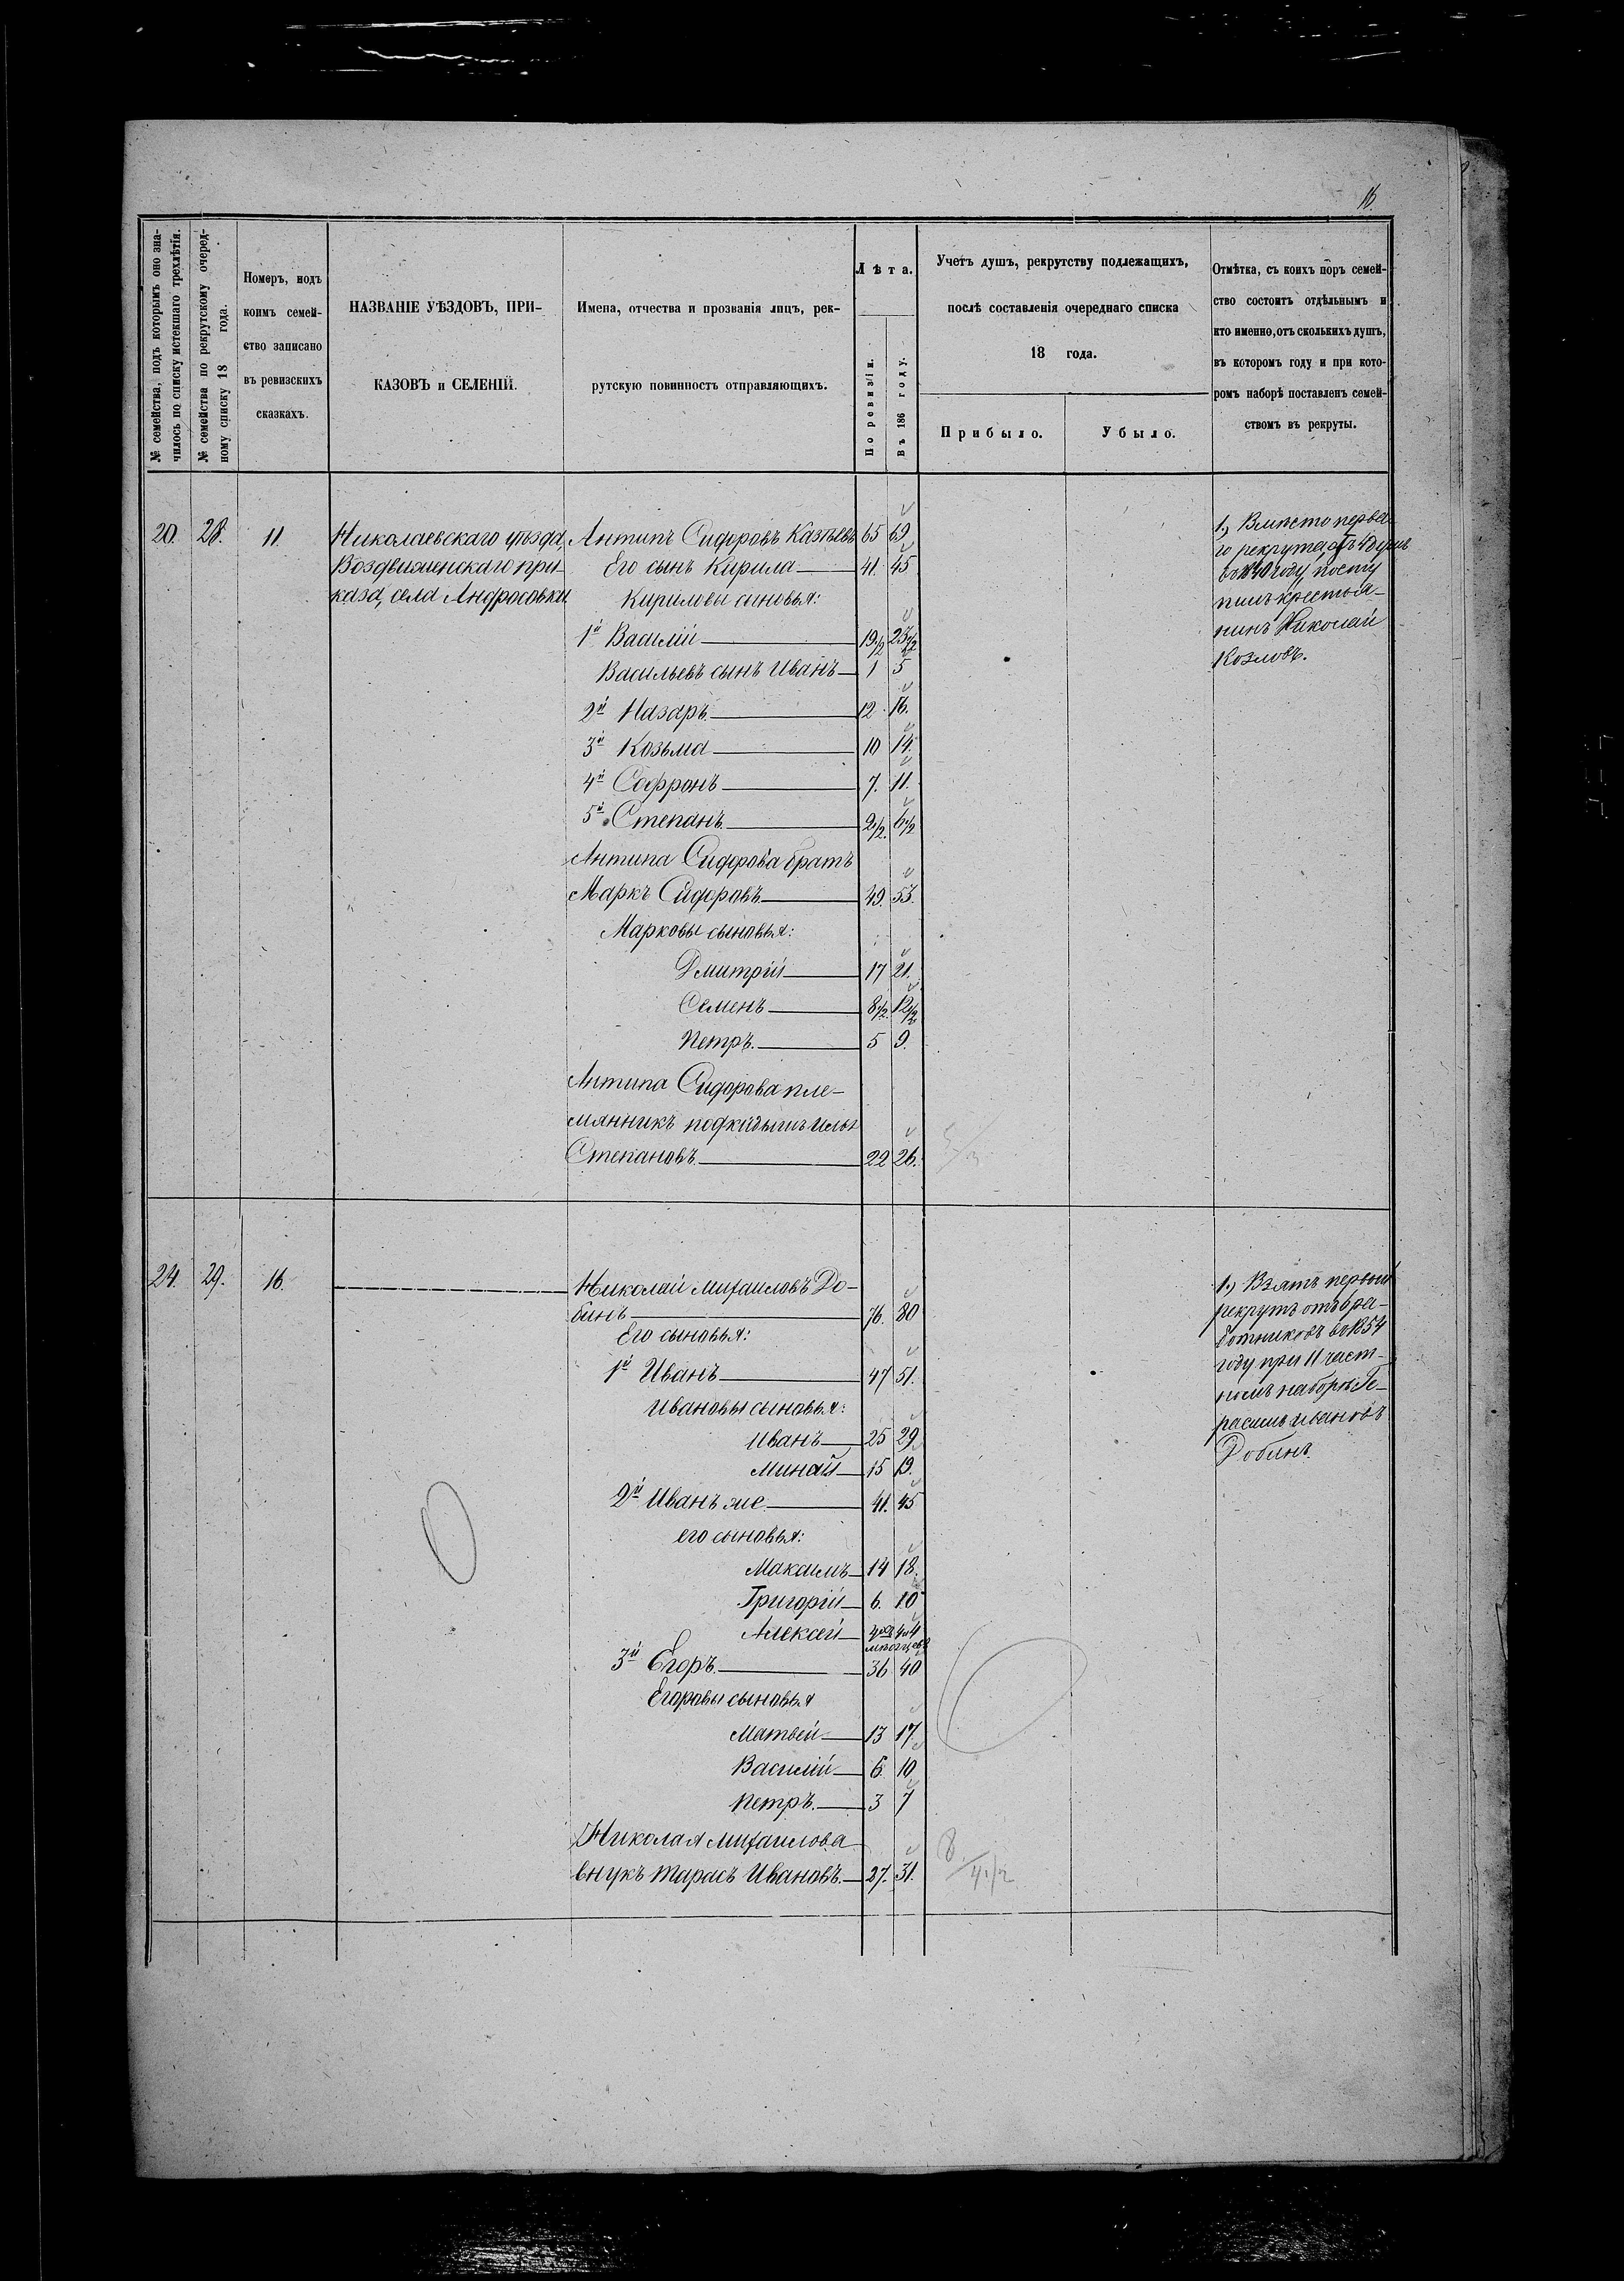 16.
№ семейства, подъ которымъ оно зна-
чилось по списку истекшаго трехлѣтія.
№ семейства по рекрутскому очеред-
ному списку 18 года.
Номеръ, подъ
коимъ семей-
ство записано
въ ревизскихъ
сказкахъ.
НАЗВАНІЕ УѢЗДОВЪ, ПРИ-
КАЗОВЪ и СЕЛЕНІЙ.
Имена, отчества и прозванія лицъ, рек-
рутскую повинность отправляющихъ.
Лѣта.
По ревизіи.
Въ 186 году.
Учетъ душъ, рекрутству подлежащихъ,
послѣ составленія очереднаго списка
18 года.
Прибыло.
Убыло.
Отмѣтка, съ коихъ поръ семей-
ство состоитъ отдѣльнымъ и
кто именно, отъ сколькихъ душъ,
въ которомъ году и при кото-
ромъ наборѣ поставленъ семей-
ствомъ въ рекруты.
20. 28. 11.
Николаевскаго уѣзда,
Воздвиженскаго при-
каза, села Андросовки.
Антипъ Сидоровъ 65 69
Его сынъ Кирила 41. 45
Кириловы сыновья:
1й Василій 19½ 23½
Васильевъ сынъ Иванъ 1 5
2й Назаръ 12 16.
3й Козьма 10 14.
4й Софронъ 7. 11.
5й Степанъ 2½. 6½
Антипа Сидорова братъ
Маркъ Сидоровъ 49. 53.
Марковы сыновья:
Дмитрій 17 21.
Семенъ 8½. 12½
Петръ. 5 9.
Антипа Сидорова пле-
мянникъ подкидышъ Илья
Степановъ 22 26.
1.) Вмѣсто перва-
го рекрута, отъ душъ
въ 1840 году, посту
пилъ крестья-
нинъ Николай
Козловъ.
24. 29. 16.
Николай Михаиловъ До-
бинъ 76. 80
Его сыновья:
1й Иванъ 47 51.
Ивановы сыновья:
Иванъ 25 29
Минай 15 19.
2й Иванъ же 41. 45
его сыновья:
Максимъ 14 18.
Григорій 6. 10
Алексей 4 4
мѣсяцевъ
3й Егоръ 36 40
Егоровы сыновья
Матвей 13 17.
Василій 6 10
Петръ. 3 7
Николая Михаилова
внукъ Тарасъ Ивановъ. 27. 31.
8/4½
1.) Взятъ первый
рекрутъ отъ 6 ра-
ботниковъ въ 1854
году при 11 част-
номъ наборѣ Ге-
расимъ Ивановъ
Добинъ.